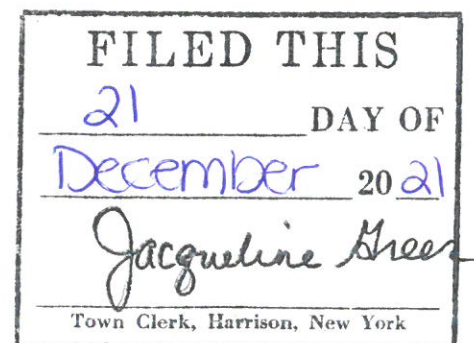 FILED THIS
21 DAY OF
December 20 21
Jacqueline Greer
Town Clerk, Harrison, New York